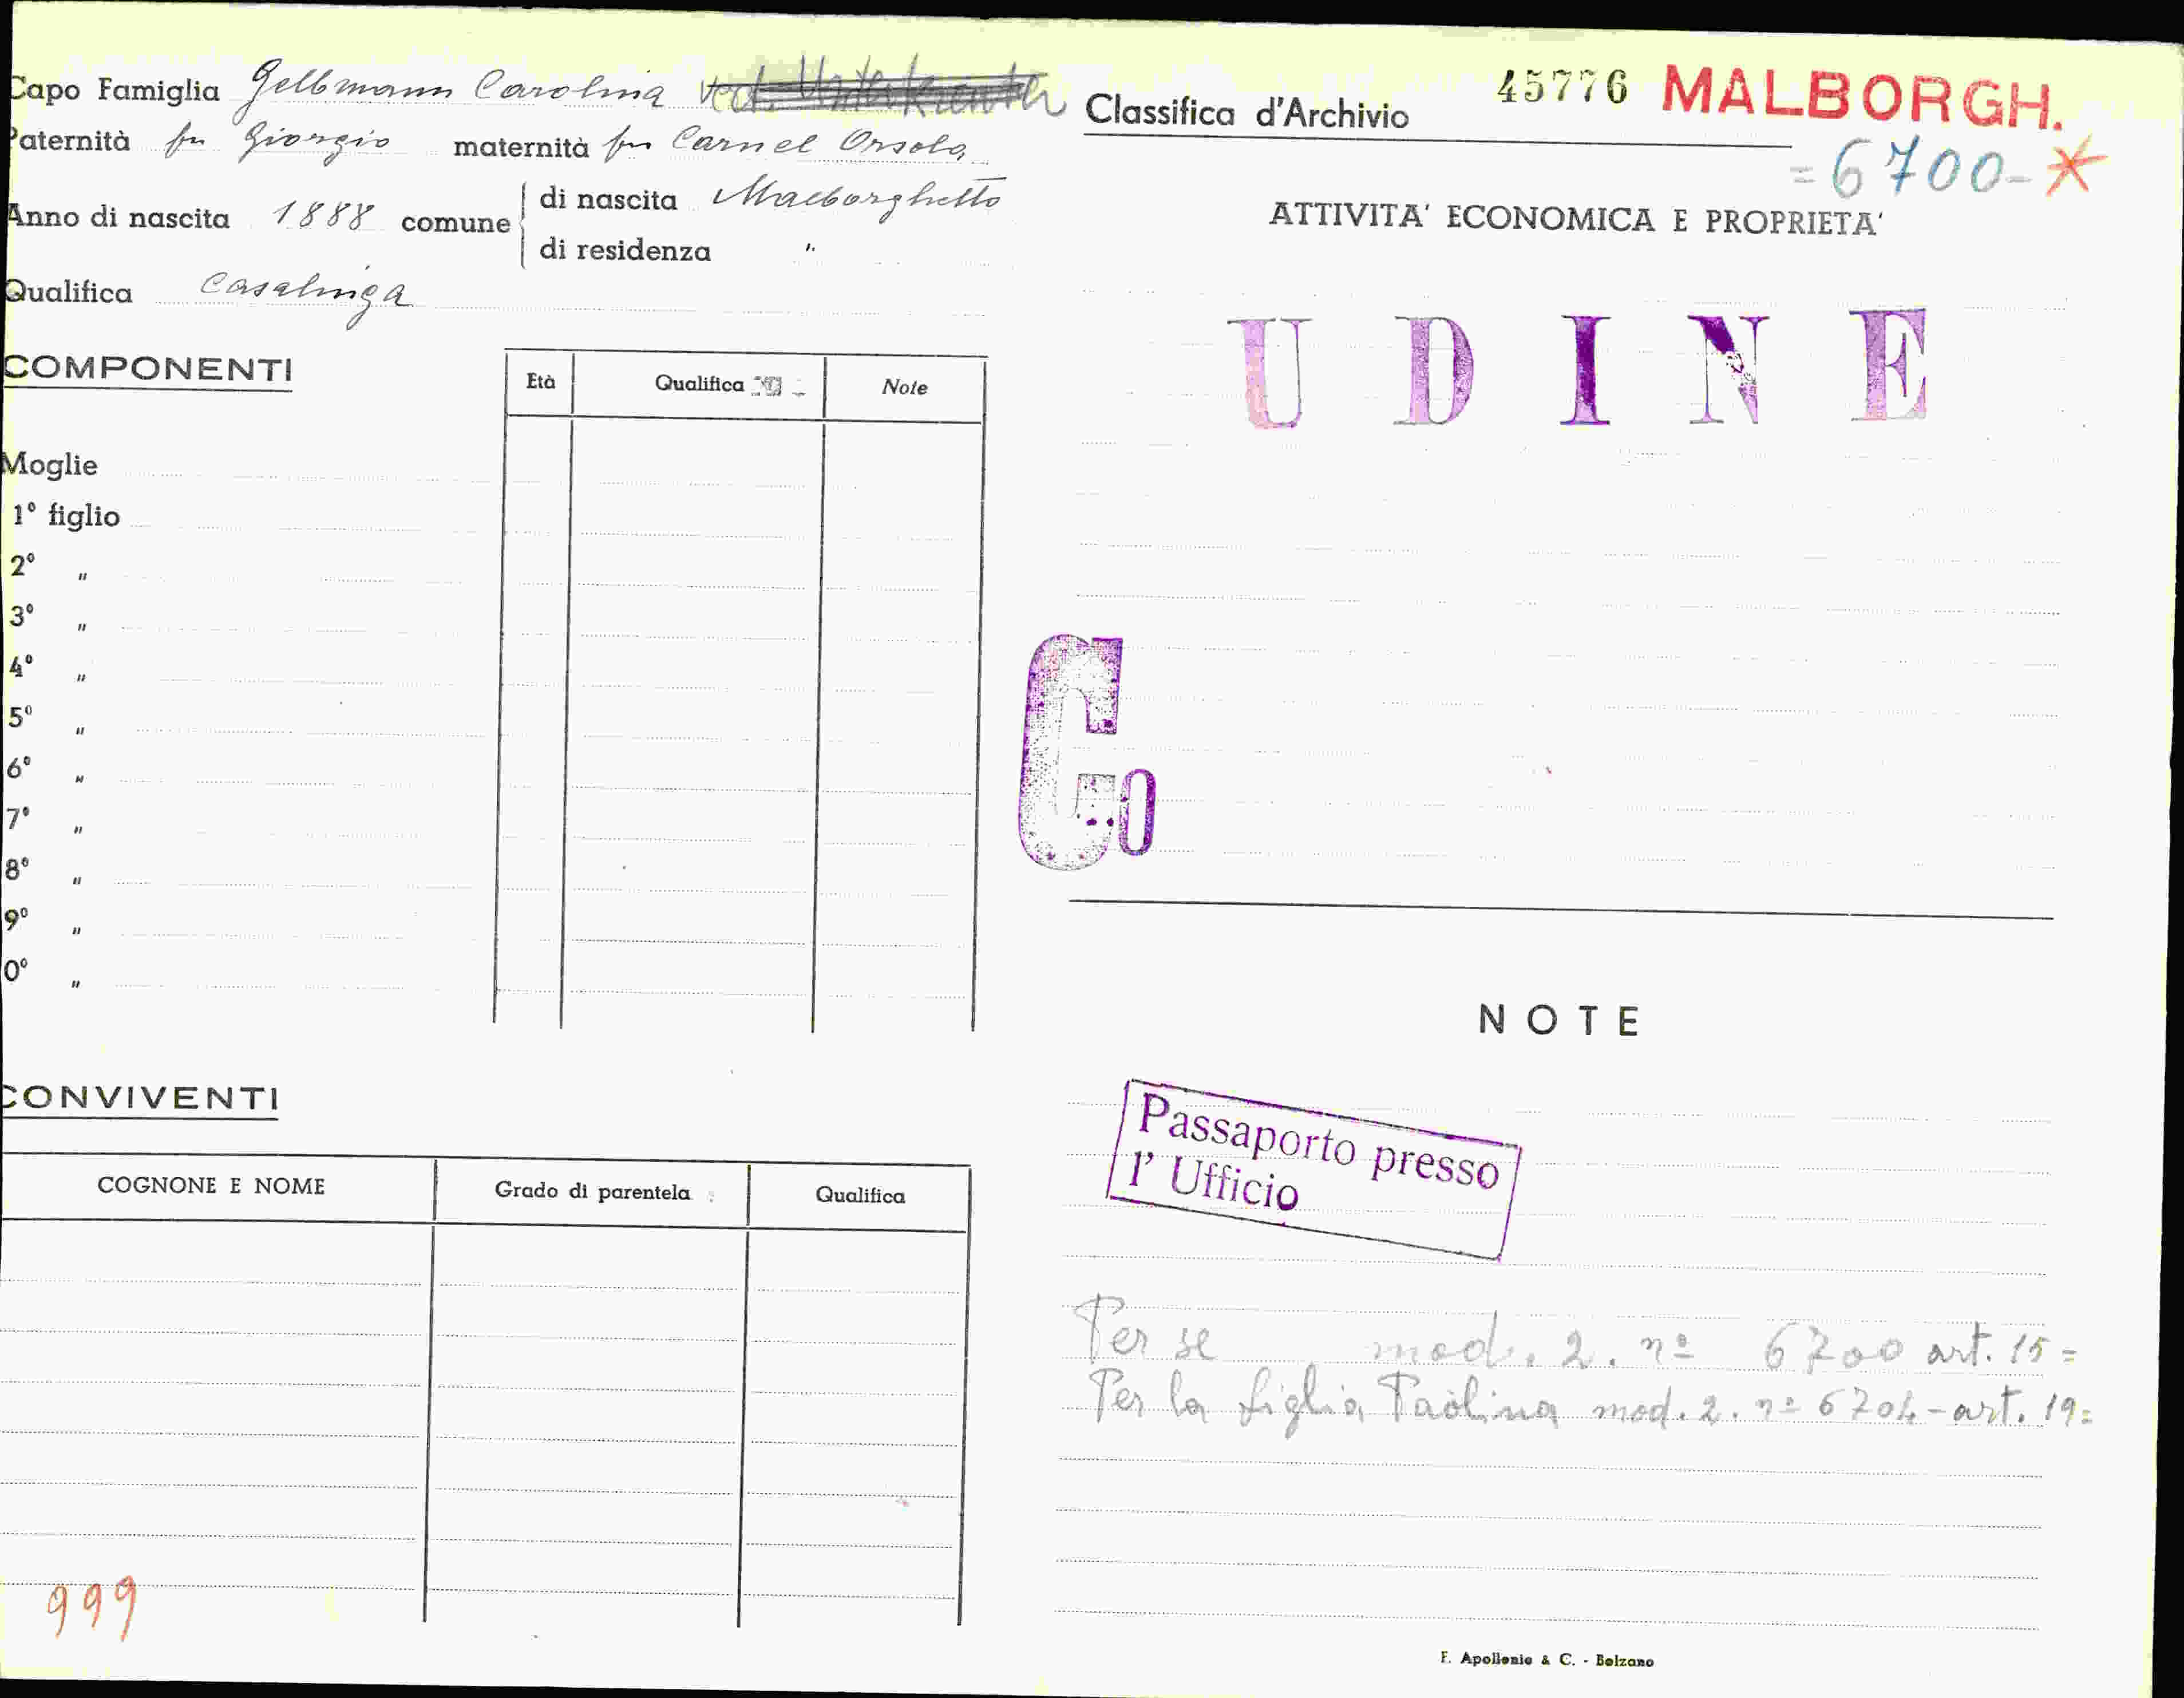 Capo Famiglia Gelbmann Carolina ved.
Paternità fu Giorgio maternità fu Carnel Orsola
Anno di nascita 1888 comune di nascita Malborghetto
di residenza "
Qualifica Casalinga
COMPONENTI
Età Qualifica Note
Moglie
1° figlio
2° "
3° "
4° "
5° "
6° "
7° "
8° "
9° "
0° "
CONVIVENTI
COGNONE E NOME Grado di parentela Qualifica
999
Classifica d'Archivio 45776 MALBORGH.
=6700-*
ATTIVITA' ECONOMICA E PROPRIETA'
UDINE
Co
NOTE
Passaporto presso
l' Ufficio
Per se mod. 2. nº 6700 art. 15=
Per la figlia Paolina mod. 2. nº 6704-art. 19=
F. Apollonio & C. - Bolzano